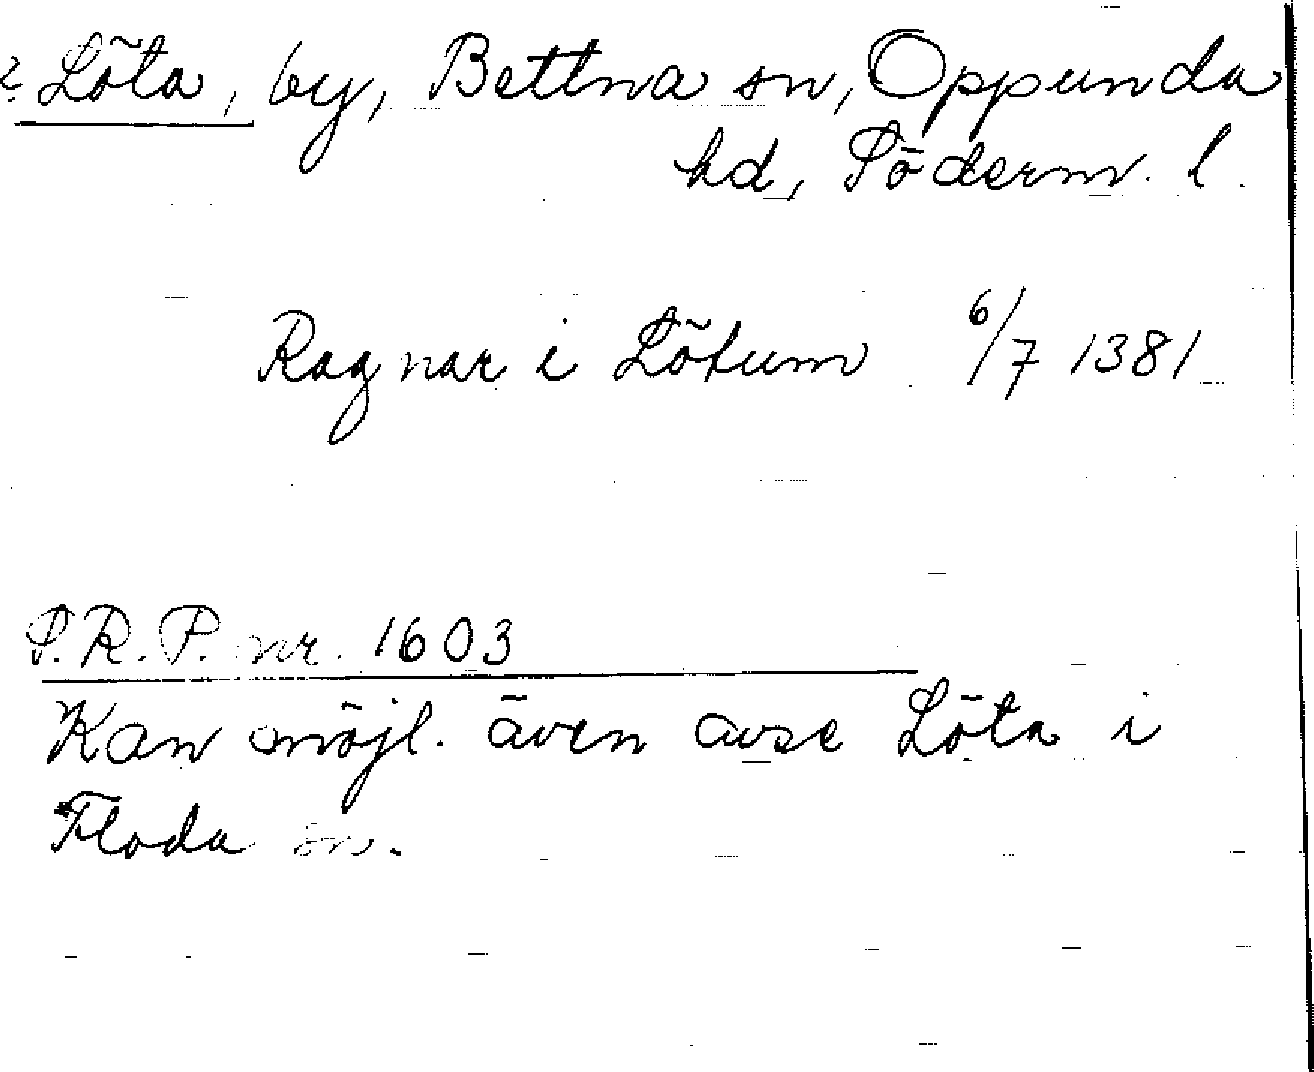 ? Löta, by, Bettna sn, Oppunda
hd, Söderm. l.
Ragnar i Lötum 6/7 1381
S.R.P. nr. 1603
Kan möjl. även avse Löta i
Floda sn.